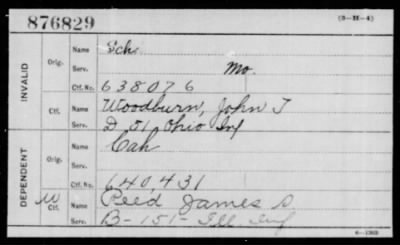 876829
(3-H-4)
INVALID
Orig.
Name Sch.
Serv. Mo.
Ctf. No. 638076
Ctf.
Name Woodburn, John T
Serv. D 51 Ohio Inf
DEPENDENT
Orig.
Name Cah
Serv.
Ctf. No. 640,431
W
Ctf.
Name Reed James S
Serv. B-151- Ill. Inf